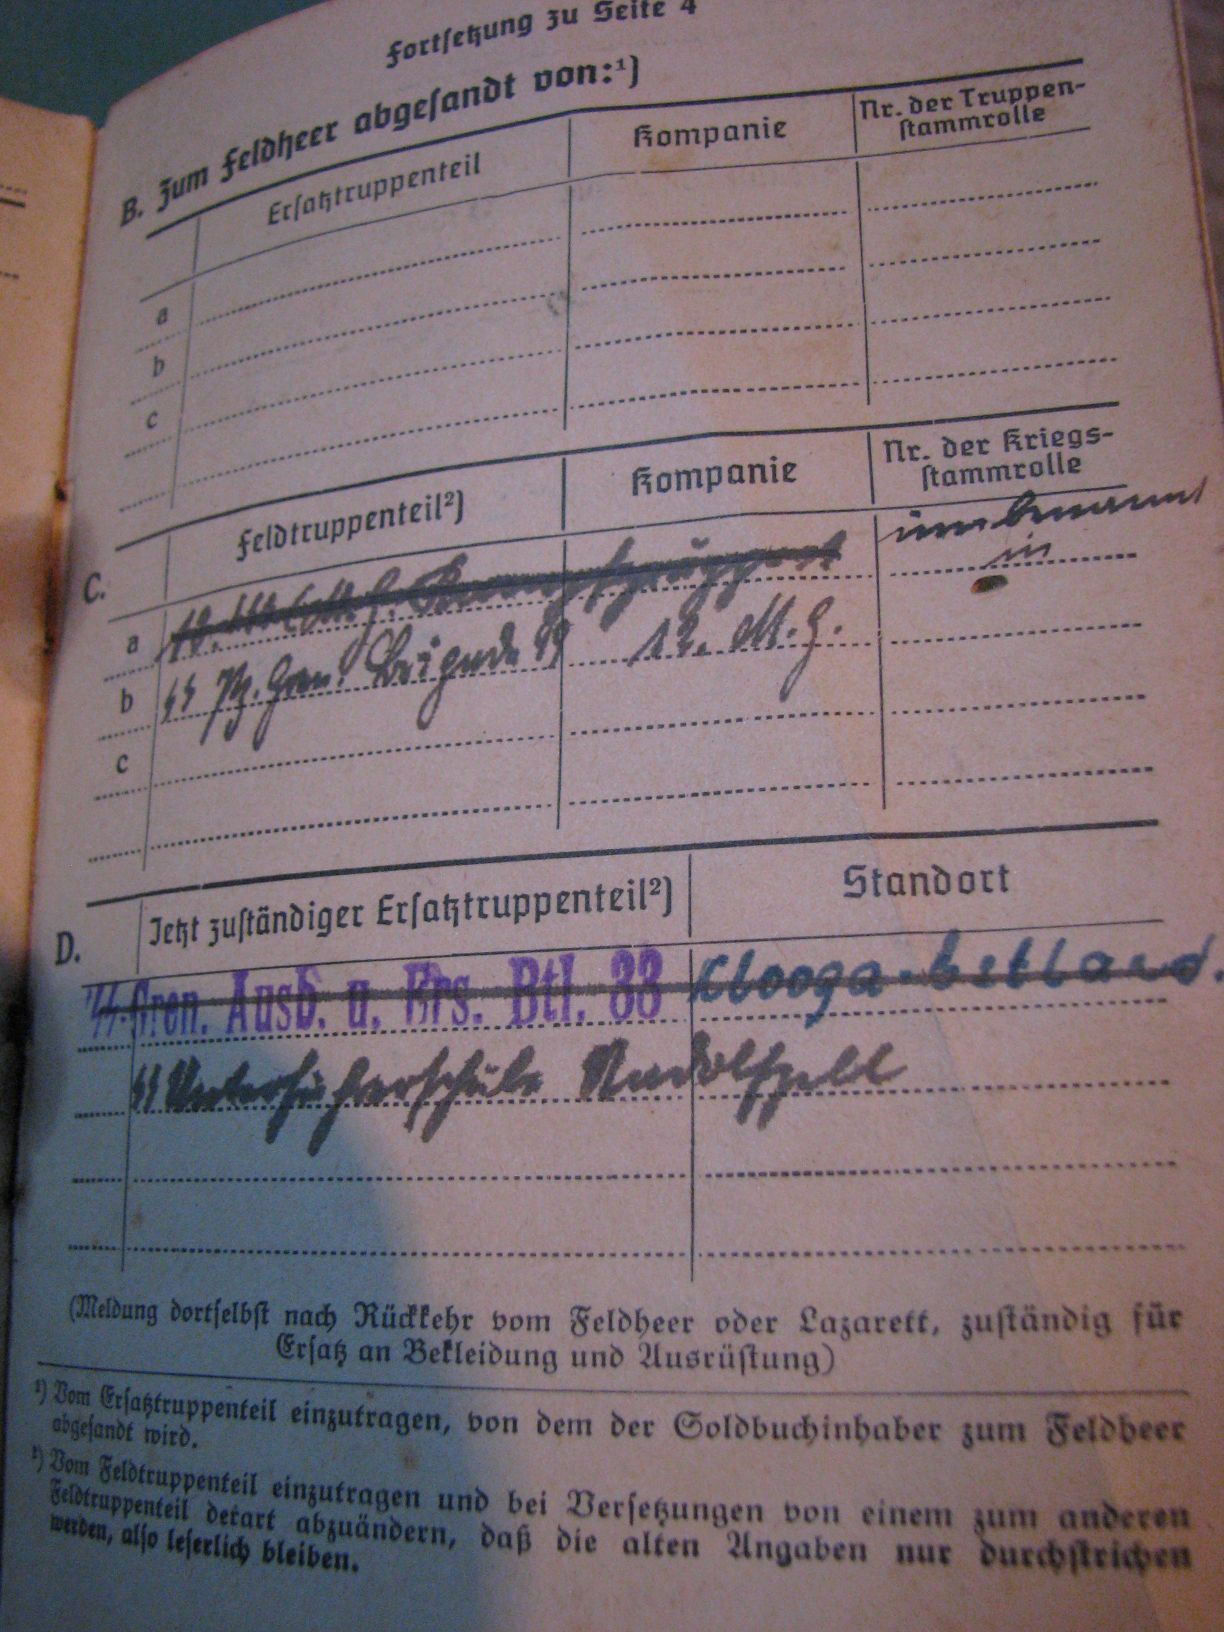 Fortsetzung zu Seite 4
B. Zum Feldheer abgesandt von:¹)
Ersatztruppenteil Kompanie Nr. der Truppen-
stammrolle
a
b
c
C. Feldtruppenteil²) Kompanie Nr. der Kriegs-
stammrolle
a umbenannt
in
b SS Pz. Gren. Brigade 49 12. M.G.
c
D. Jetzt zuständiger Ersatztruppenteil²) Standort
SS-Gren. Ausb. u. Ers. Btl. 33 Klooga-Estland.
SS Unterführerschule Radolfzell
(Meldung dortselbst nach Rückkehr vom Feldheer oder Lazarett, zuständig für
Ersatz an Bekleidung und Ausrüstung)
¹) Vom Ersatztruppenteil einzutragen, von dem der Soldbuchinhaber zum Feldheer
abgesandt wird.
²) Vom Feldtruppenteil einzutragen und bei Versetzungen von einem zum anderen
Feldtruppenteil derart abzuändern, daß die alten Angaben nur durchstrichen
werden, also leserlich bleiben.